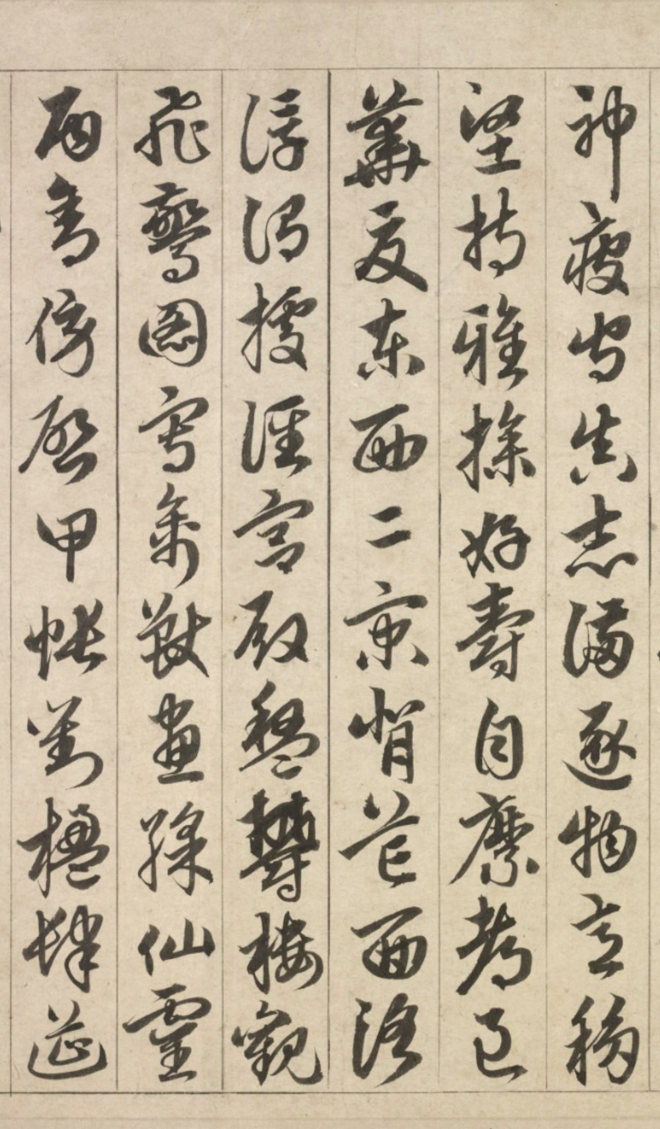 神疲守真志滿逐物意移
堅持雅操好爵自縻都邑
華夏東西二京背芒面洛
浮渭據涇宮殿盤鬱樓觀
飛驚圖寫禽獸畫綵仙靈
丙舍傍啟甲帳對楹肆筵